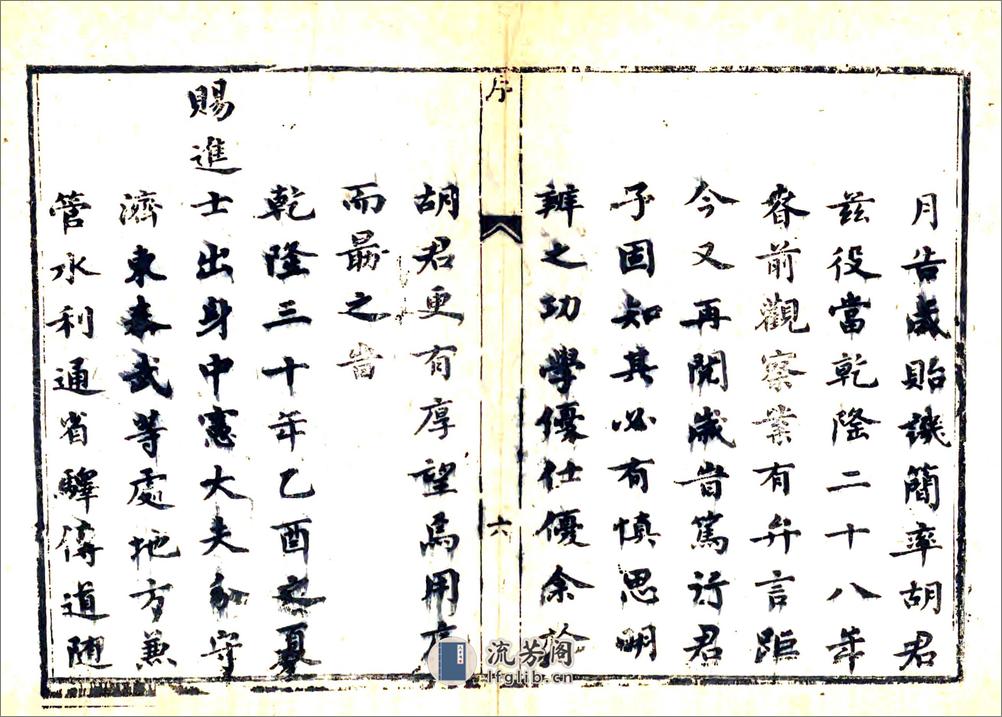 月告歲貽譏簡率胡君
茲役當乾隆二十八年
前觀察業有弁言距
今又再閱歲旹篤行君
子固知其必有慎思明
辨之功學優仕優余於
序
六
胡君更有厚望焉用序
而勗之旹
乾隆三十年乙酉之夏
賜進士出身中憲大夫分守
濟東泰武等處地方兼
管水利通省驛傳道隨
流芳阁
lfglib.cn